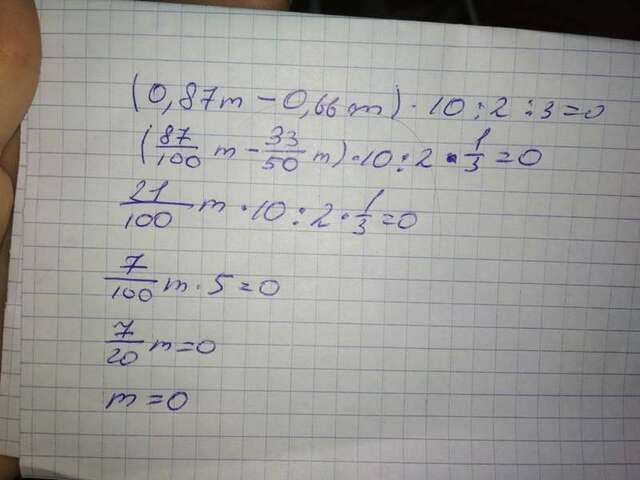 (0,87m - 0,66m) · 10 : 2 : 3 = 0
(87/100 m - 33/50 m) · 10 : 2 · 1/3 = 0
21/100 m · 10 : 2 · 1/3 = 0
7/100 m · 5 = 0
7/20 m = 0
m = 0